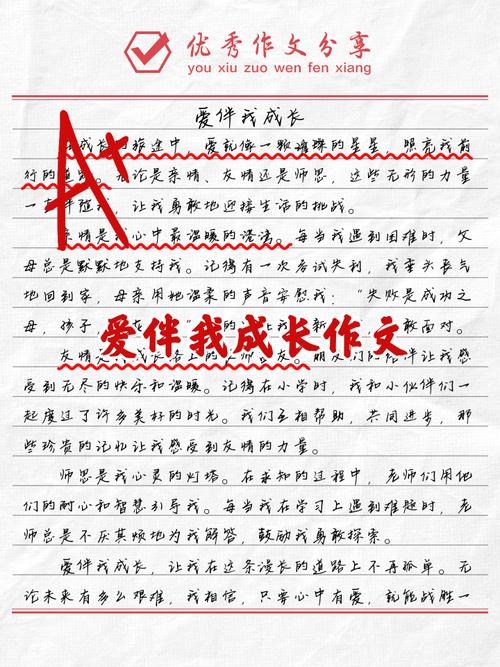 优秀作文分享
you xiu zuo wen fen xiang
爱伴我成长
A+
成长 旅途中，爱就像一颗璀璨的星星，照亮我前
行的道路。无论是亲情、友情还是师恩，这些无形的力量
一直伴随 ，让我勇敢地迎接生活的挑战。
亲情是 心中最温暖的港湾。每当我遇到困难时，父
母总是默默地支持我。记得有一次考试失利，我垂头丧气
地回到家，母亲用她温柔的声音安慰我：“失败是成功之
母，孩子， 在 ” 的 让我 新 敢面对。
爱伴我成长作文
友情 成长路上的 师 友。朋友们的 伴让我感
受到无尽的快乐和温暖。记得在小学时，我和小伙伴们一
起度过了许多美好的时光。我们互相帮助，共同进步，那
些珍贵的记忆让我感受到友情的力量。
师恩是我心灵的灯塔。在求知的过程中，老师们用他
们的耐心和智慧引导我。每当我在学习上遇到难题时，老
师总是不厌其烦地为我解答，鼓励我勇敢探索。
爱伴我成长，让我在这条漫长的道路上不再孤单。无
论未来有多么艰难，我相信，只要心中有爱，就能战胜一